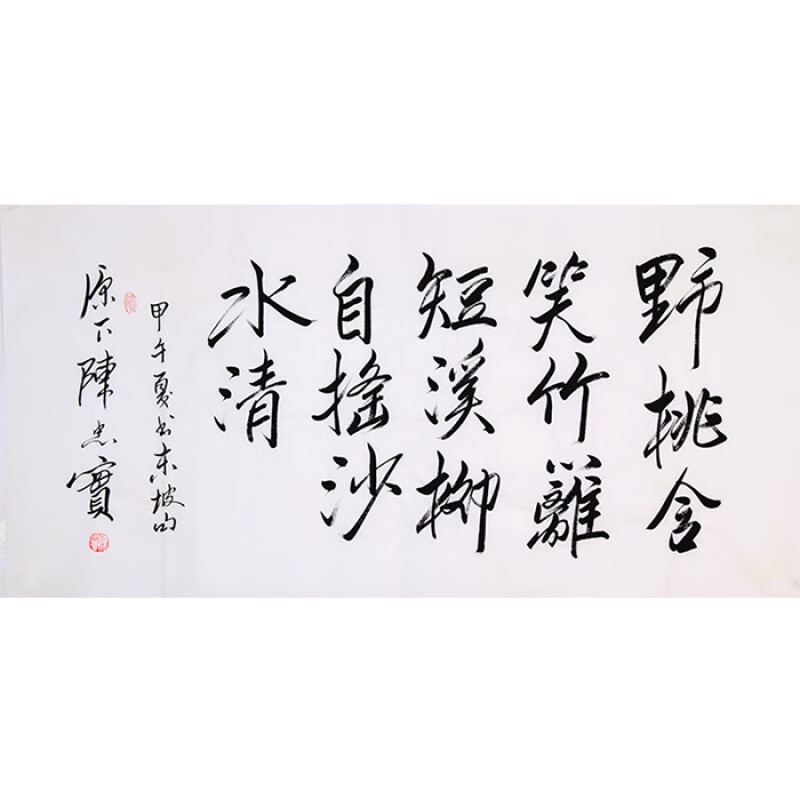 野桃含
笑竹籬
短溪柳
自搖沙
水清
甲午夏书东坡句
原下陳忠實